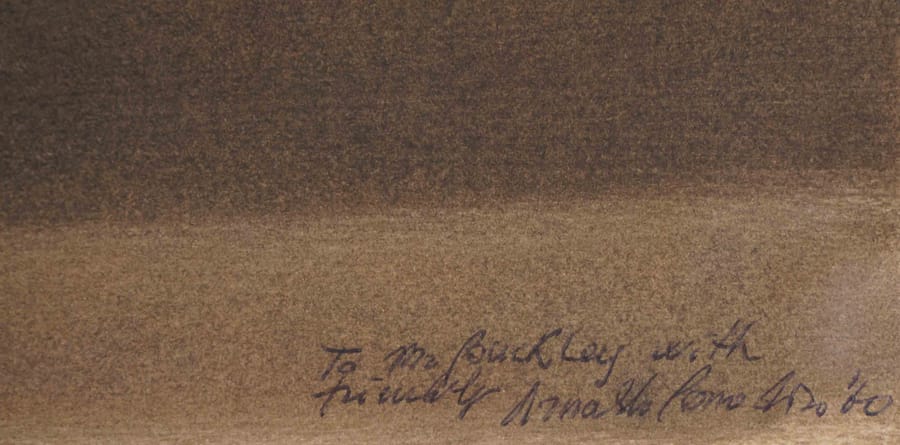 To Mr Buckley with
friendly Arnaldo Pomodoro '60